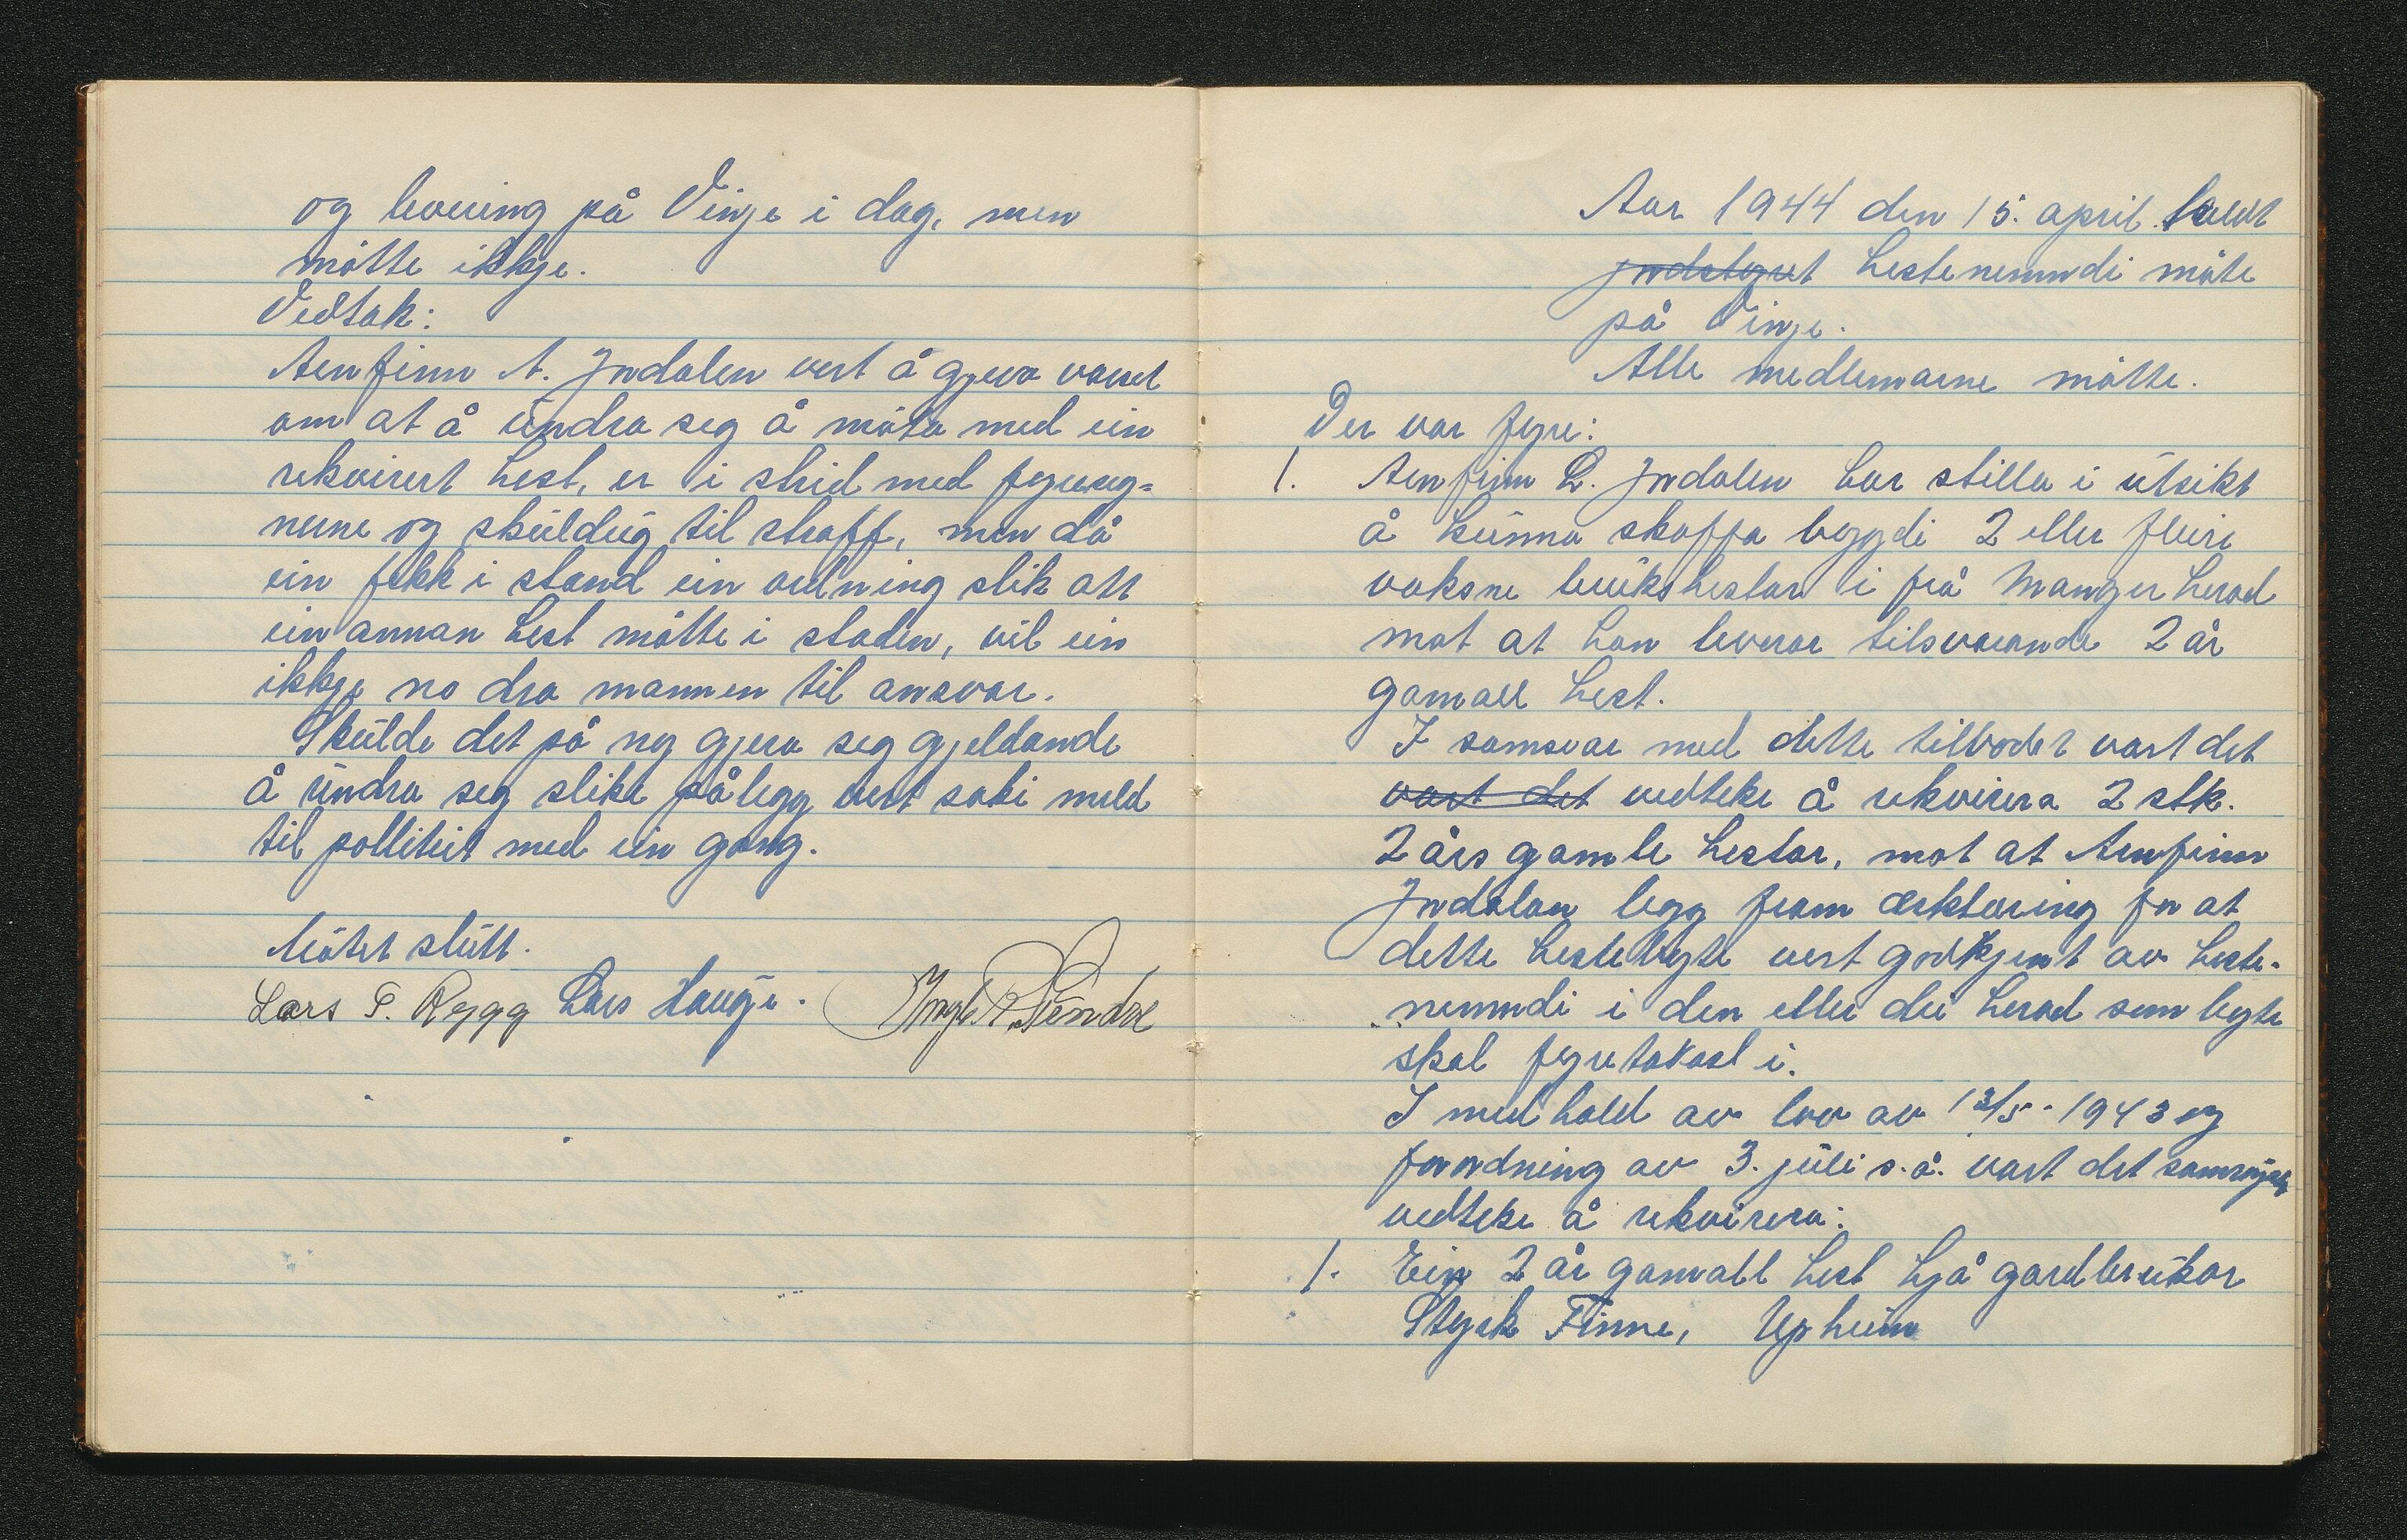 og levering på Vinje i dag, men
møtte ikkje.
Vedtak:
Arnfinn A. Indalen vert å gjeva varsel
om at å undra seg å møta med ein
rekvirert hest, er i strid med fyreseg=
nerne og skuldig til straff, men då
ein fekk i stand ein ordning slik att
ein annan hest møtte i staden, vil ein
ikkje no dra mannen til ansvar.
Skulde det på ny gjera seg gjeldande
å undra seg slike pålegg vert saki meld
til pollitiet med ein gong.
Møtet slutt.
Lars T. Rygg Lars Hauge.
Aar 1944 den 15. april heldt
indstyret hestenemndi møte
på Vinje.
Alle medlemarne møtte.
Der var fyre:
1. Arnfinn L. Indalen har stilla i utsikt
å kunna skaffa bygdi 2 eller fleire
vaksne brukshestar i frå Manger herad
mot at han leverar tilsvarande 2 år
gamall hest.
I samsvar med dette tilbodet vart det
vart det vedteke å rekvirera 2 stk.
2 års gamle hestar, mot at Arnfinn
Indalen legg fram ærklæring for at
dette hestebyte vert godkjent av heste-
nemndi i den eller dei herad som byte
skal fyretakast i.
I medhald av lov av 13/5. 1943 og
forordning av 3. juli s.å. vart det samrøystes
vedteke å rekvirera:
1. Ein 2 år gamall hest hjå gardbrukar
Styrk Finne, Upheim